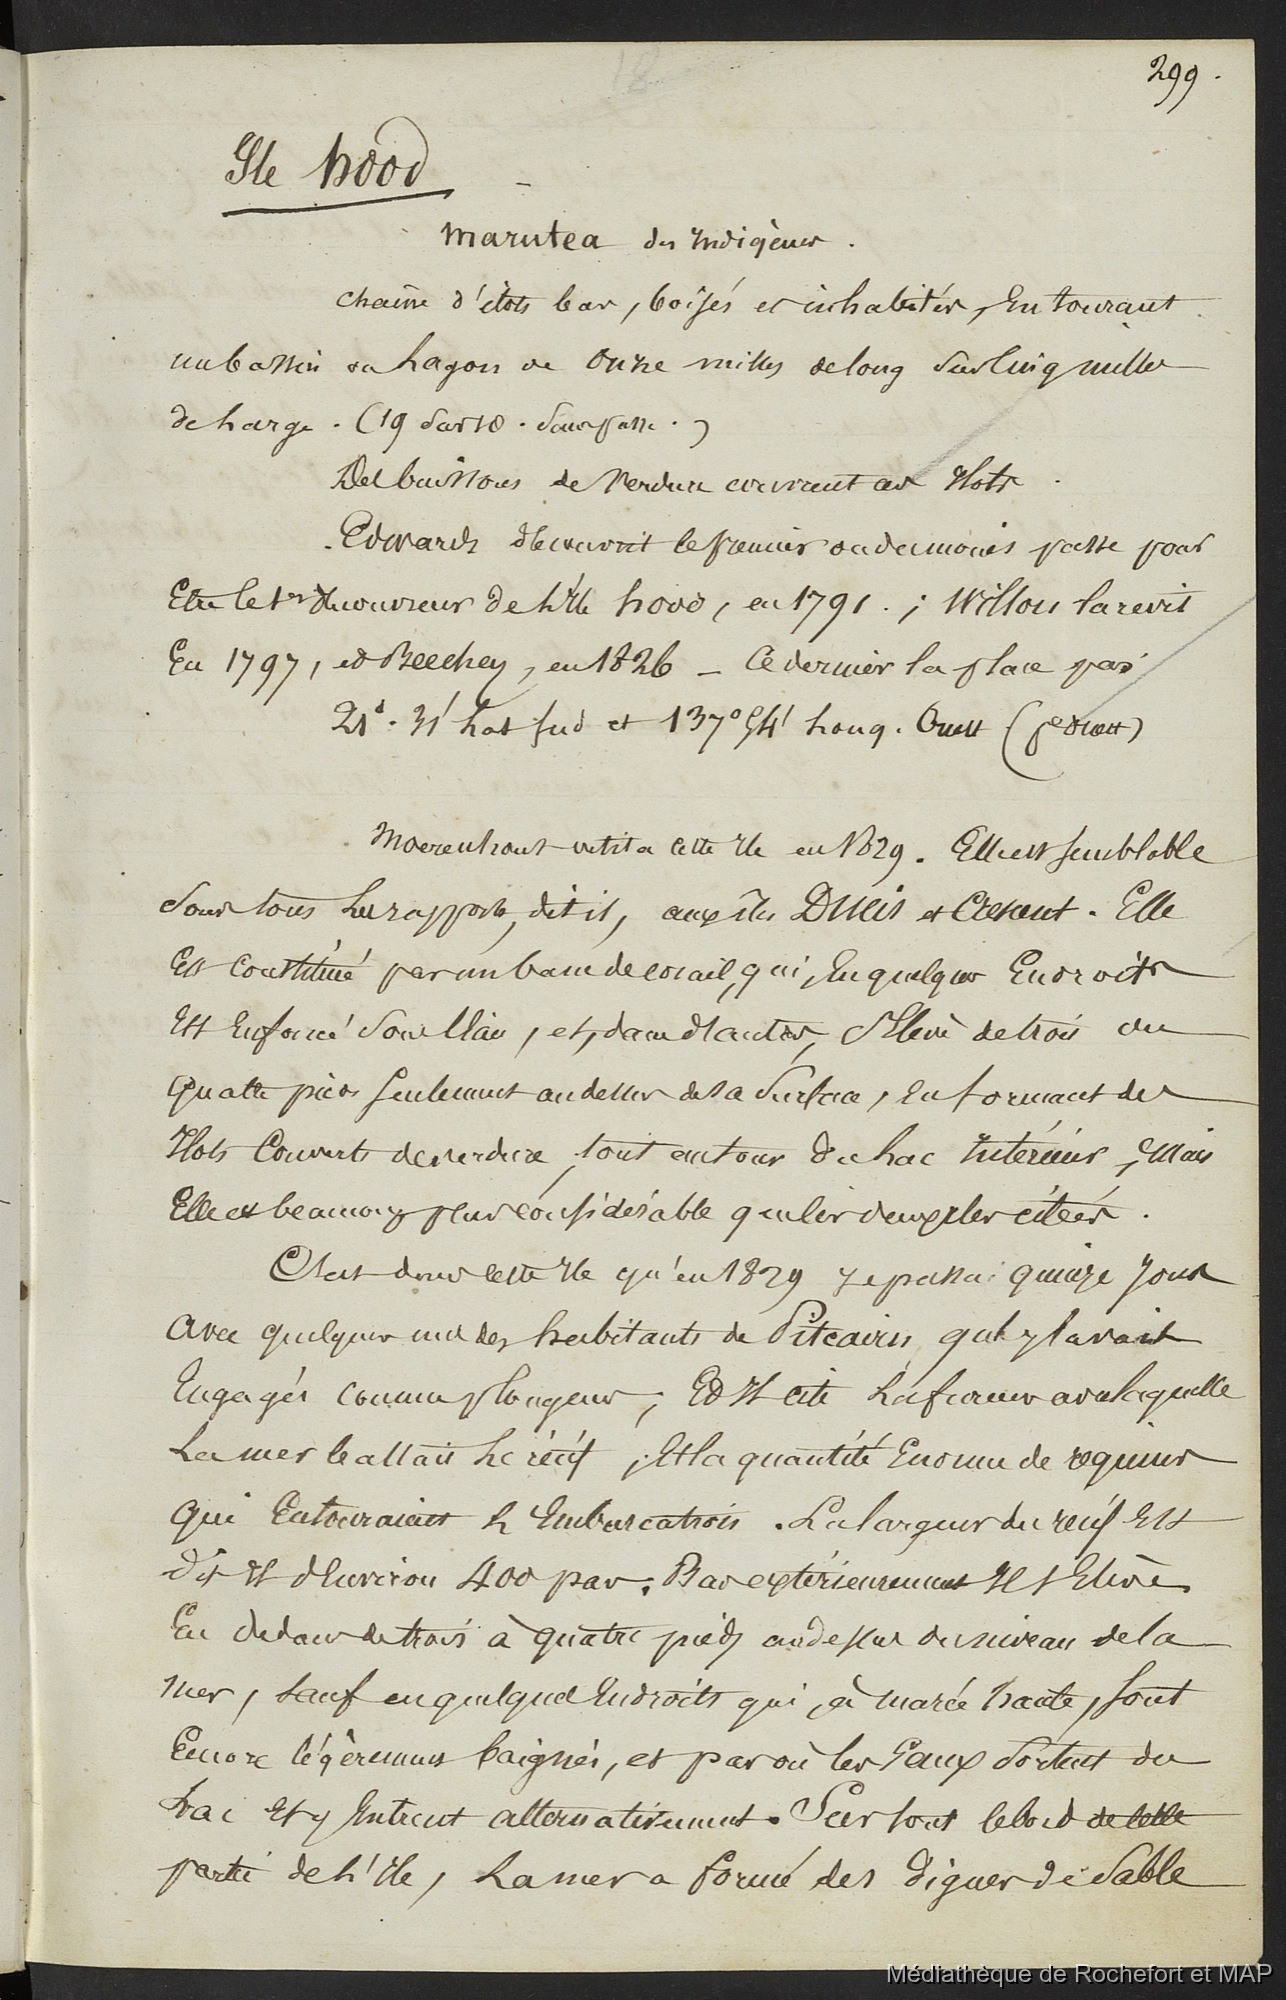 299.
Ile hood
marutea des indigènes.
Chaine d'ilots bas, boisés et inhabités, Entourant
un bassin ou Lagon de Onze milles de long sur Cinq milles
de Large. (19 sur 10. Sans passe.)
Des buissons de Verdure couvrent ces Ilots.
Edwards découvrit le premier ou du moins passe pour
Etre le 1er découvreur de L'Ile hood, en 1791.; Willson la revit
En 1797, et Beechey, en 1826 – Ce dernier la place par
21°. 31' Lat sud et 137° 54' Long. Ouest
Moerenhout visita cette Ile en 1829. Elle est semblable
sous tous Les rapports, dit il, aux îles Ducis et Crescent. Elle
Est constituée par un banc de corail, qui, En quelques Endroits
Est Enfoncé sous l'Eau, et, dans d'autres, s'Elève de trois ou
quatre pieds seulement au dessus de la surface, en formant des
Ilots Couverts de verdure, tout autour du Lac Intérieur, Mais
Elle est beaucoup plus considérable que les deux Iles citées.
C'est dans cette Ile qu'en 1829 Je passai quinze Jours
avec quelques uns des habitants de Pitcairn, qu'il avait
Engagés comme plongeurs; Et Il cite La fureur avec laquelle
La mer battait Le récif, Et la quantité Enorme de requins
qui Entouraient L'Embarcation. La largeur du récif Est
dit Il d'Environ 400 pas. Bas extérieurement Il s'Elève
En dedans de trois à quatre pieds au dessus du niveau de la
mer, sauf en quelques Endroits qui, à marée haute, sont
Encore légèrement baignés, et par où les Eaux sortent du
Lac Et y Entrent alternativement. Sur tout le bord de cette
partie de L'Ile, La mer a formé des digues de Sable
Médiathèque de Rochefort et MAP